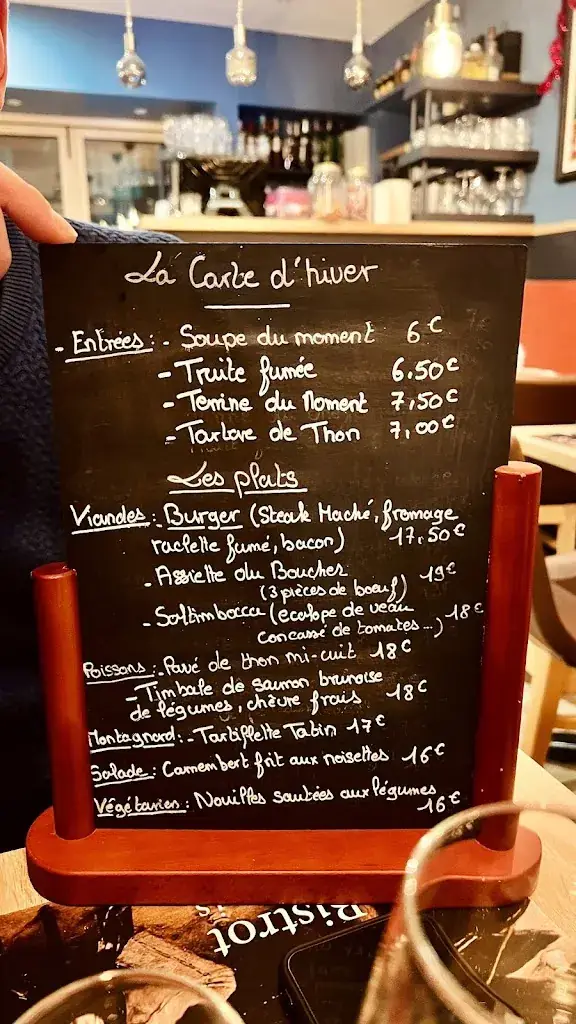 La Carte d'hiver
- Entrées : - Soupe du moment 6€
- Truite fumée 6.50€
- Terrine du Moment 7,50€
- Tartare de Thon 7,00€
Les plats
Viandes : Burger (Steak Haché, fromage
raclette fumé, bacon) 17.50€
- Assiette du Boucher 19€
(3 pièces de bœuf)
- Saltimbocca (escalope de veau 18€
concassé de tomates...)
Poissons : - Pavé de thon mi-cuit 18€
- Timbale de saumon brunoise
de légumes, chèvre frais 18€
Montagnard : - Tartiflette Tatin 17€
Salade : Camembert frit aux noisettes 16€
Végétarien : Nouilles sautées aux légumes
16€
Bistrot